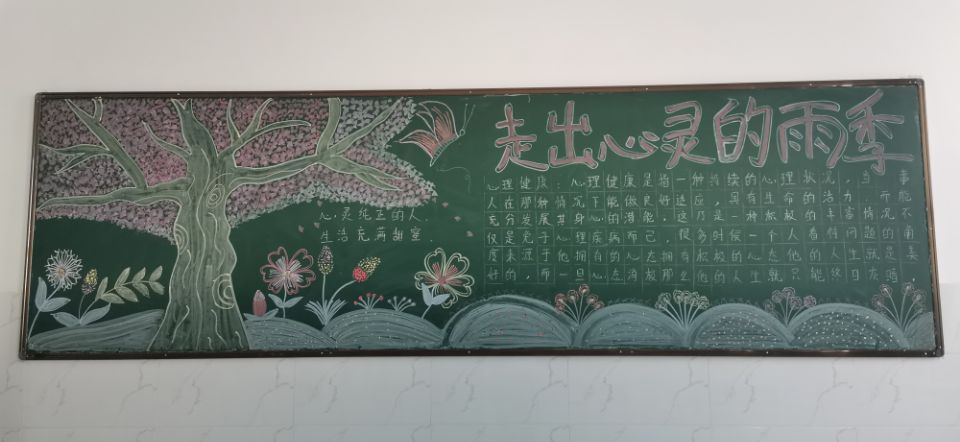 走出心灵的雨季
心灵纯正的人，
生活充满甜蜜
心理健康：心理健康是指一种持续的心理状况，当事
人在那种情况下能做良好适应，具有生命的活力，而能
充分发展其身心的潜能，这乃是一种积极的丰富情况不
仅是免于心理疾病而已，很多时候一个人看待问题的角
度来源于他拥有的心态积极的心态他的人生就是美
好的，而一旦心态消极那么他的人生就只能终日灰暗